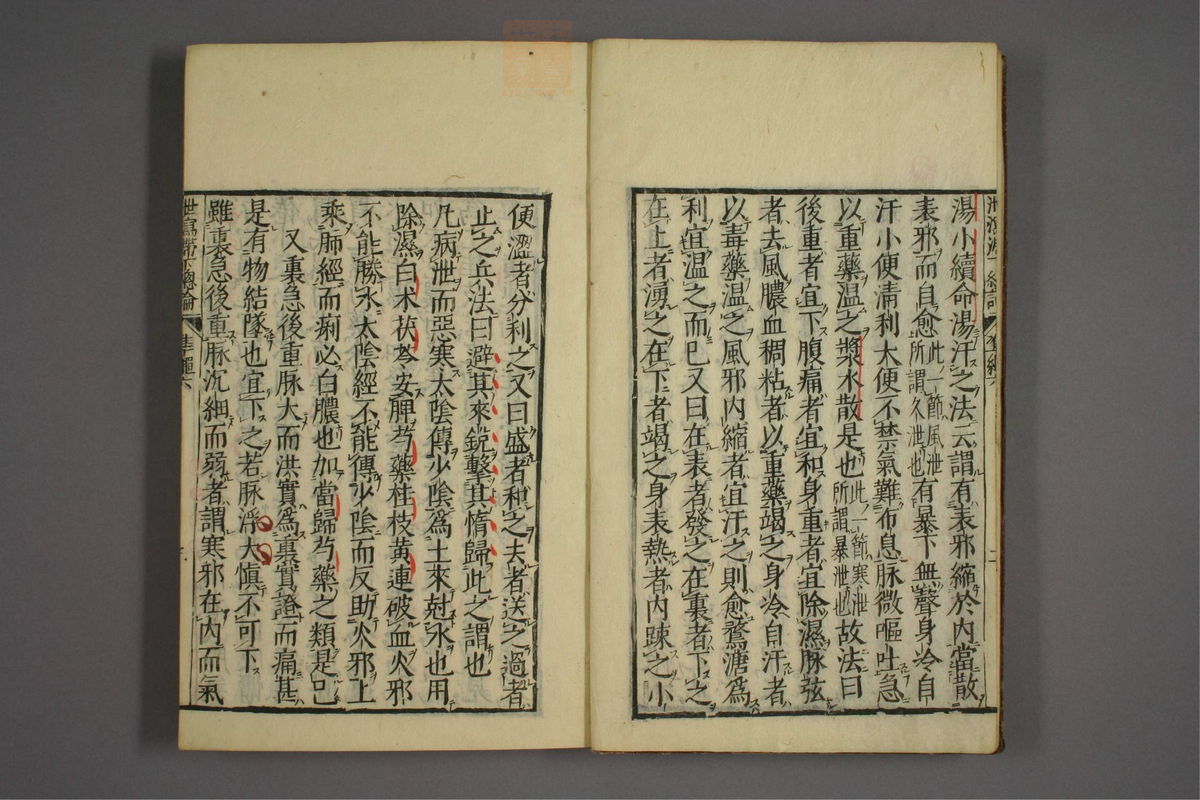 湯小續命湯汗之法云謂有表邪縮於内當散
表邪而自愈此一節風泄所謂久泄也有暴下無聲身冷自
汗小便清利大便不禁氣難布息脉微嘔吐急
以重藥温之漿水散是也此一節寒泄所謂暴泄也故法曰
後重者宜下腹痛者宜和身重者宜除濕脉弦
者去風膿血稠粘者以重藥竭之身冷自汗者
以毒藥温之風邪内縮者宜汗之則愈鶩溏為
利宜温之而已又曰在表者發之在裏者下之
在上者湧之在下者竭之身表熱者内踈之小
便澀者分利之又曰盛者和之去者送之過者
止之兵法曰避其來鋭擊其惰歸此之謂也
凡病泄而惡寒太陰傳少陰為土來尅水也用
除濕白术茯苓安脾芍藥桂枝黄連破血火邪
不能勝水太陰經不能傳少陰而反助火邪上
乘肺經而痢必白膿也加當歸芍藥之類是已
又裏急後重脉大而洪實為裏實證而痛甚
是有物結墜也宜下之若脉浮大慎不可下
雖裏急後重脉沉細而弱者謂寒邪在内而氣
世寫滯下總論 隼繩六